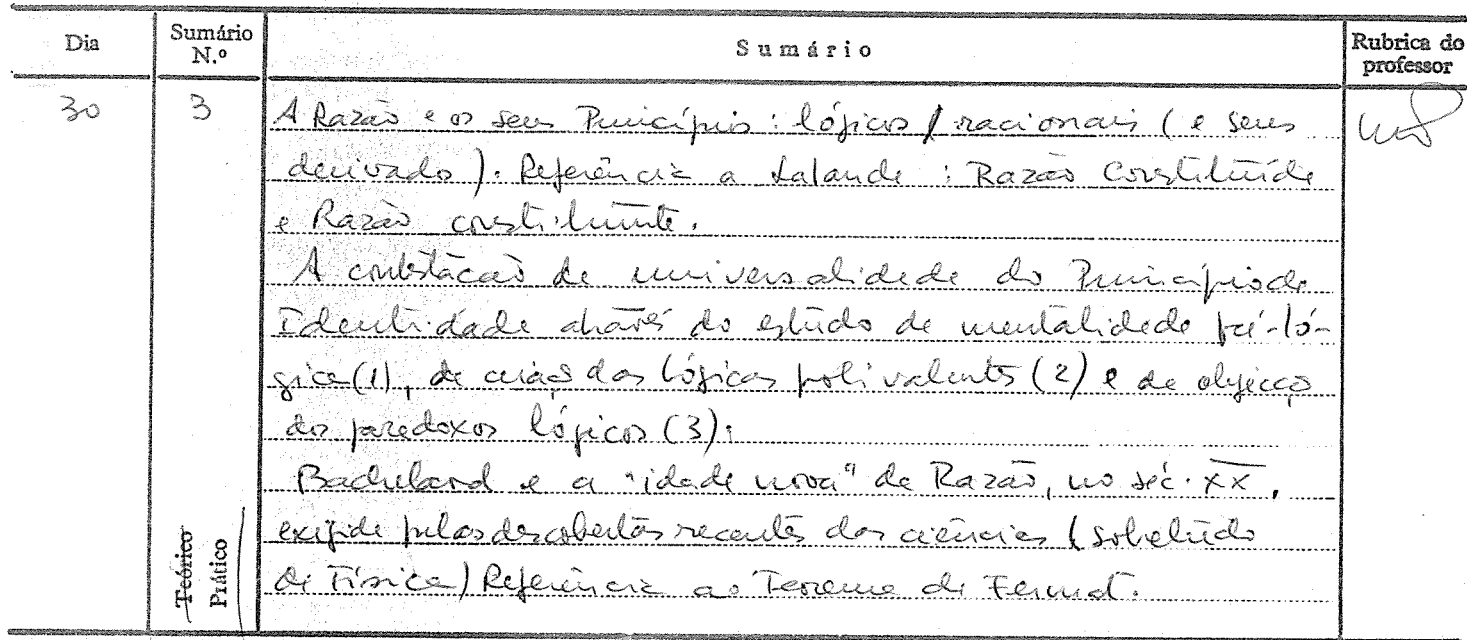 Dia Sumário N.º Sumário Rubrica do professor
30 3 A Razão e os seus Princípios: lógicos / racionais (e seus
derivado). Referência a Lalande: Razão Constituída
e Razão constituinte.
A contestação da universalidade do Princípio de
Identidade através do estudo da mentalidade pré-ló-
gica (1), da criação das lógicas polivalentes (2) e da objecção
dos paradoxos lógicos (3).
Bachelard e a "idade nova" da Razão, no séc. XX,
exigida pelas descobertas recentes das ciências (sobretudo
da Física) Referência ao Teorema de Fermat.
Teórico
Prático